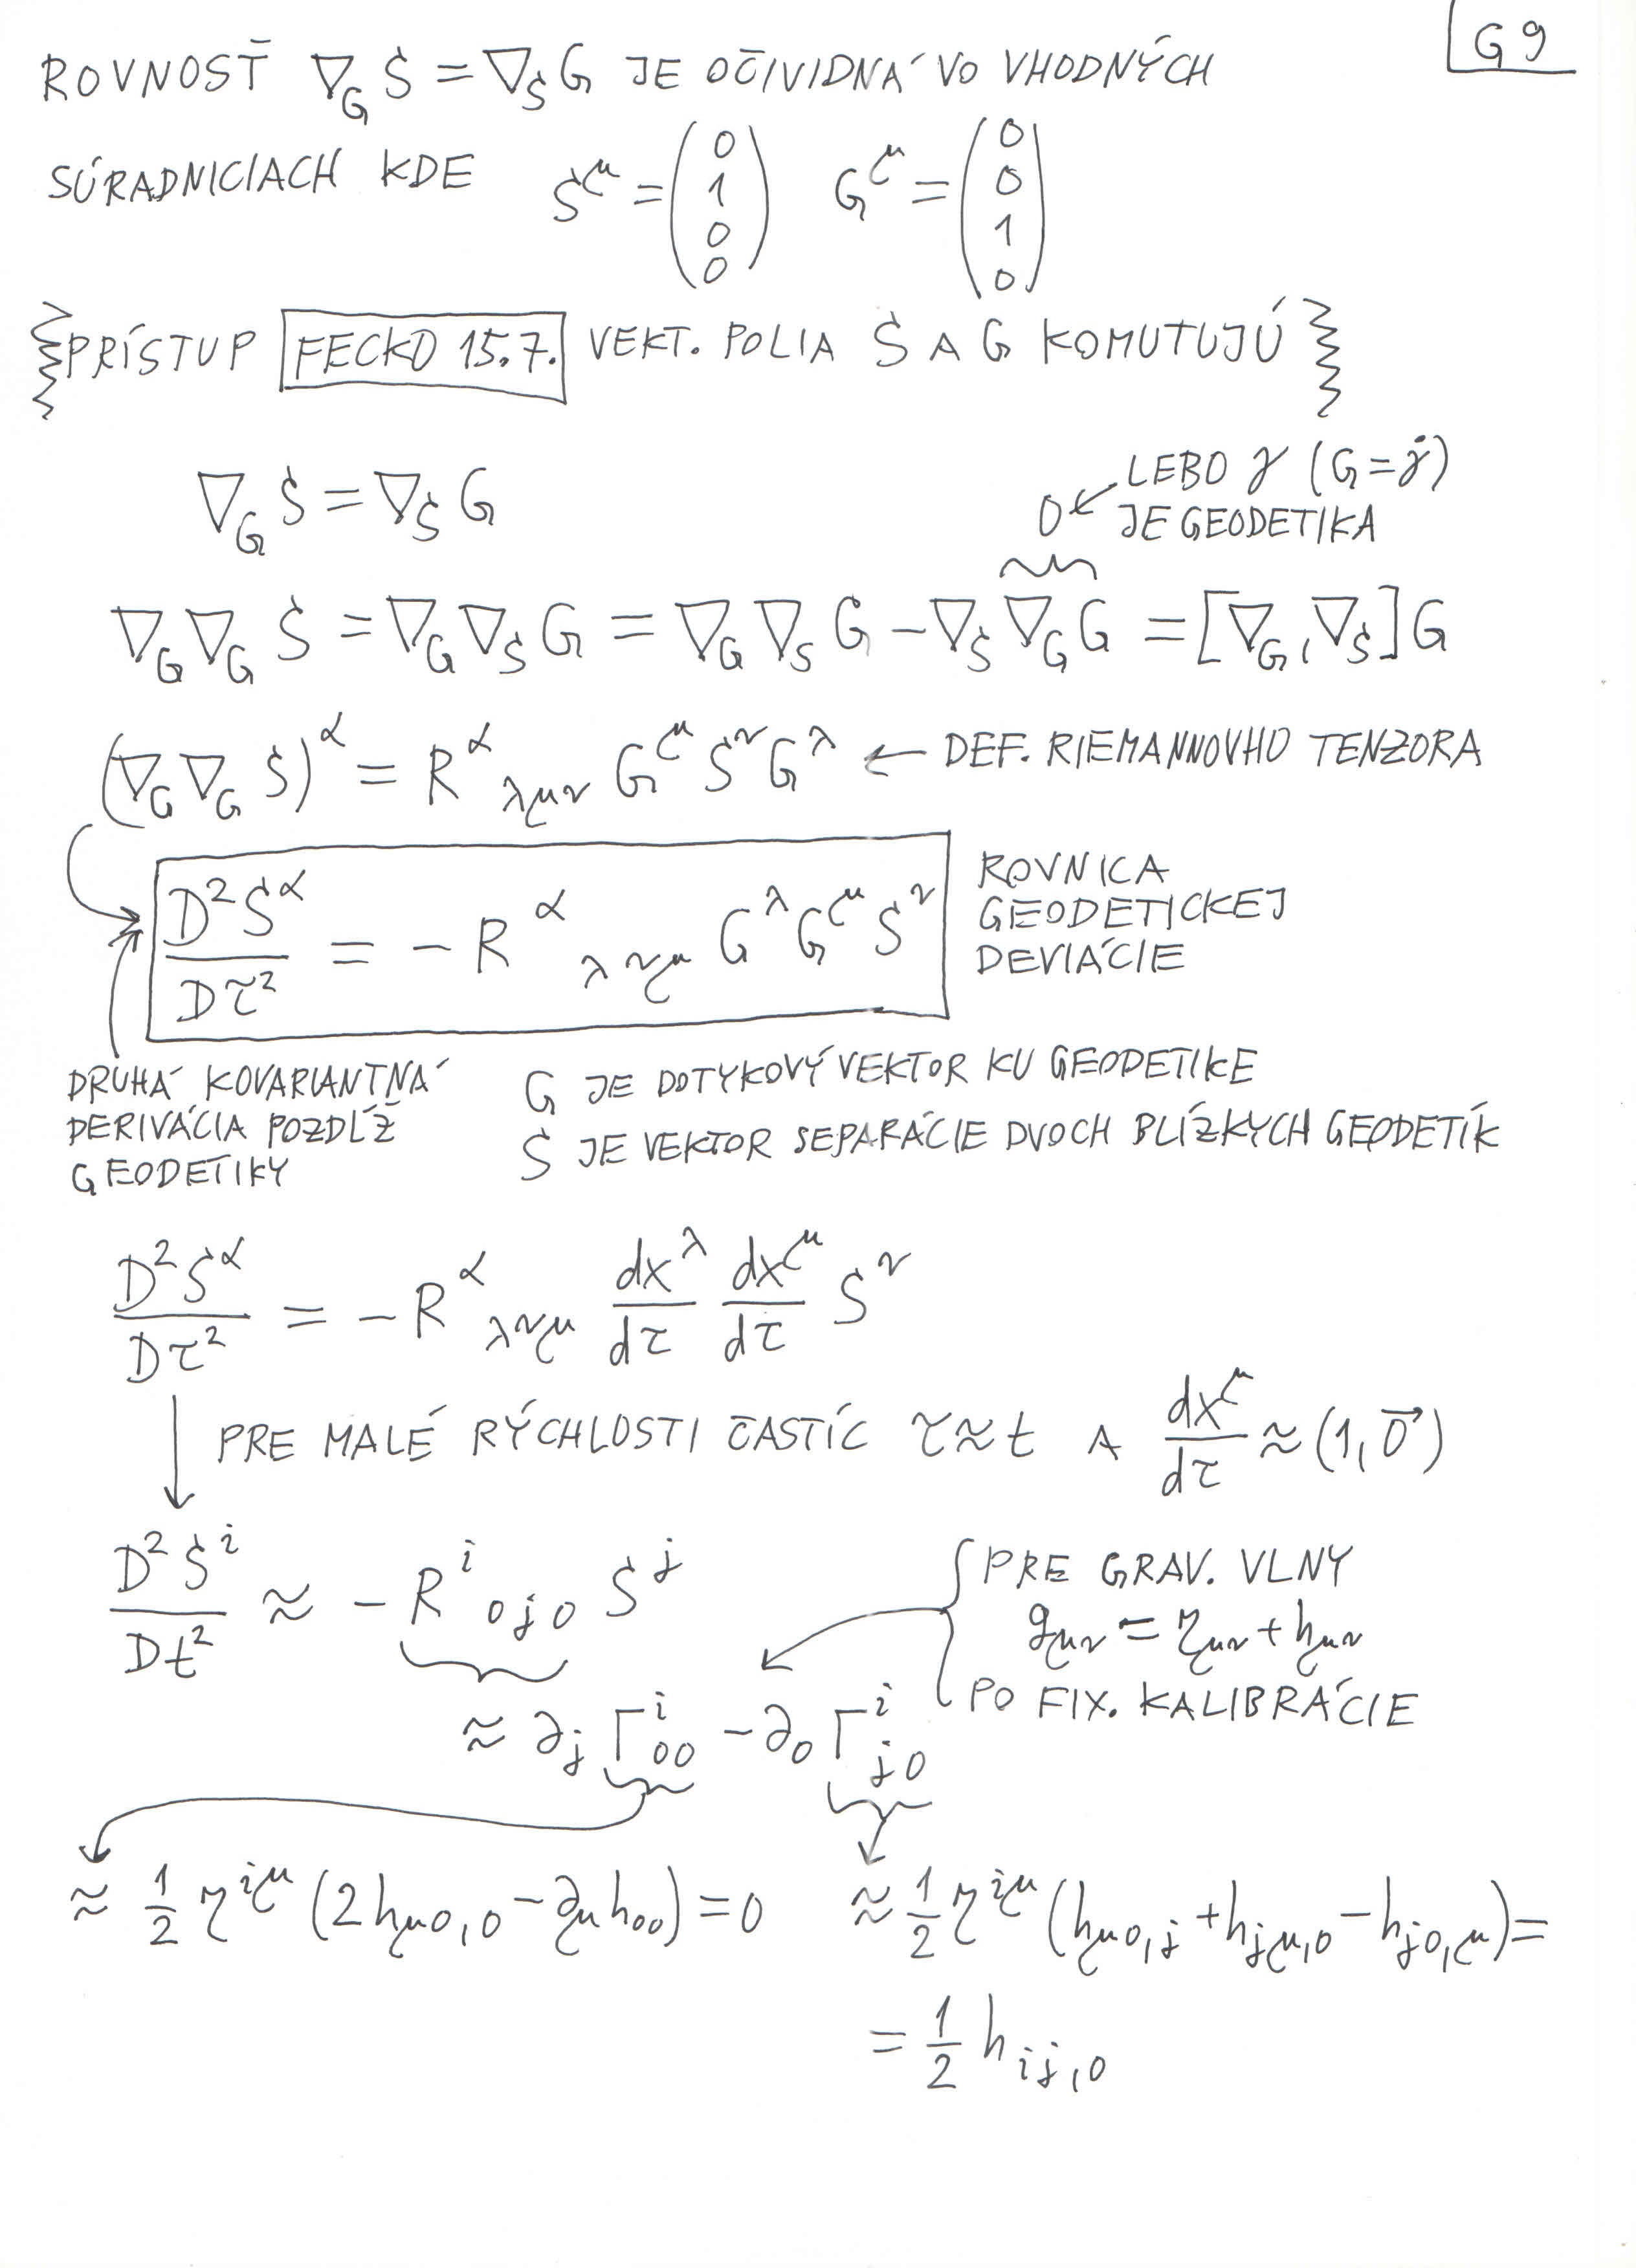 G 9
ROVNOSŤ ∇_G S = ∇_S G JE OČIVIDNÁ VO VHODNÝCH
SÚRADNICIACH KDE S^μ = (0 1 0 0) G^μ = (0 0 1 0)
PRÍSTUP FECKO 15.7. VEKT. POLIA S A G KOMUTUJÚ
∇_G S = ∇_S G
0 ← LEBO γ (G = γ̇)
JE GEODETIKA
∇_G ∇_G S = ∇_G ∇_S G = ∇_G ∇_S G − ∇_S ∇_G G = [∇_G, ∇_S] G
(∇_G ∇_G S)^α = R^α_{λμν} G^μ S^ν G^λ ← DEF. RIEMANNOVHO TENZORA
D²S^α/Dτ² = − R^α_{λνμ} G^λ G^μ S^ν
ROVNICA
GEODETICKEJ
DEVIÁCIE
DRUHÁ KOVARIANTNÁ
DERIVÁCIA POZDĹŽ
GEODETIKY
G JE DOTYKOVÝ VEKTOR KU GEODETIKE
S JE VEKTOR SEPARÁCIE DVOCH BLÍZKYCH GEODETÍK
D²S^α/Dτ² = − R^α_{λνμ} dx^λ/dτ dx^μ/dτ S^ν
PRE MALÉ RÝCHLOSTI ČASTÍC τ ≈ t A dx^μ/dτ ≈ (1, 0⃗)
D²S^i/Dt² ≈ − R^i_{0j0} S^j
PRE GRAV. VLNY
g_{μν} = η_{μν} + h_{μν}
PO FIX. KALIBRÁCIE
≈ ∂_j Γ^i_{00} − ∂_0 Γ^i_{j0}
≈ 1/2 η^{iμ} (2h_{μ0,0} − ∂_μ h_{00}) = 0
≈ 1/2 η^{iμ} (h_{μ0,j} + h_{jμ,0} − h_{j0,μ}) =
= 1/2 h_{ij,0}